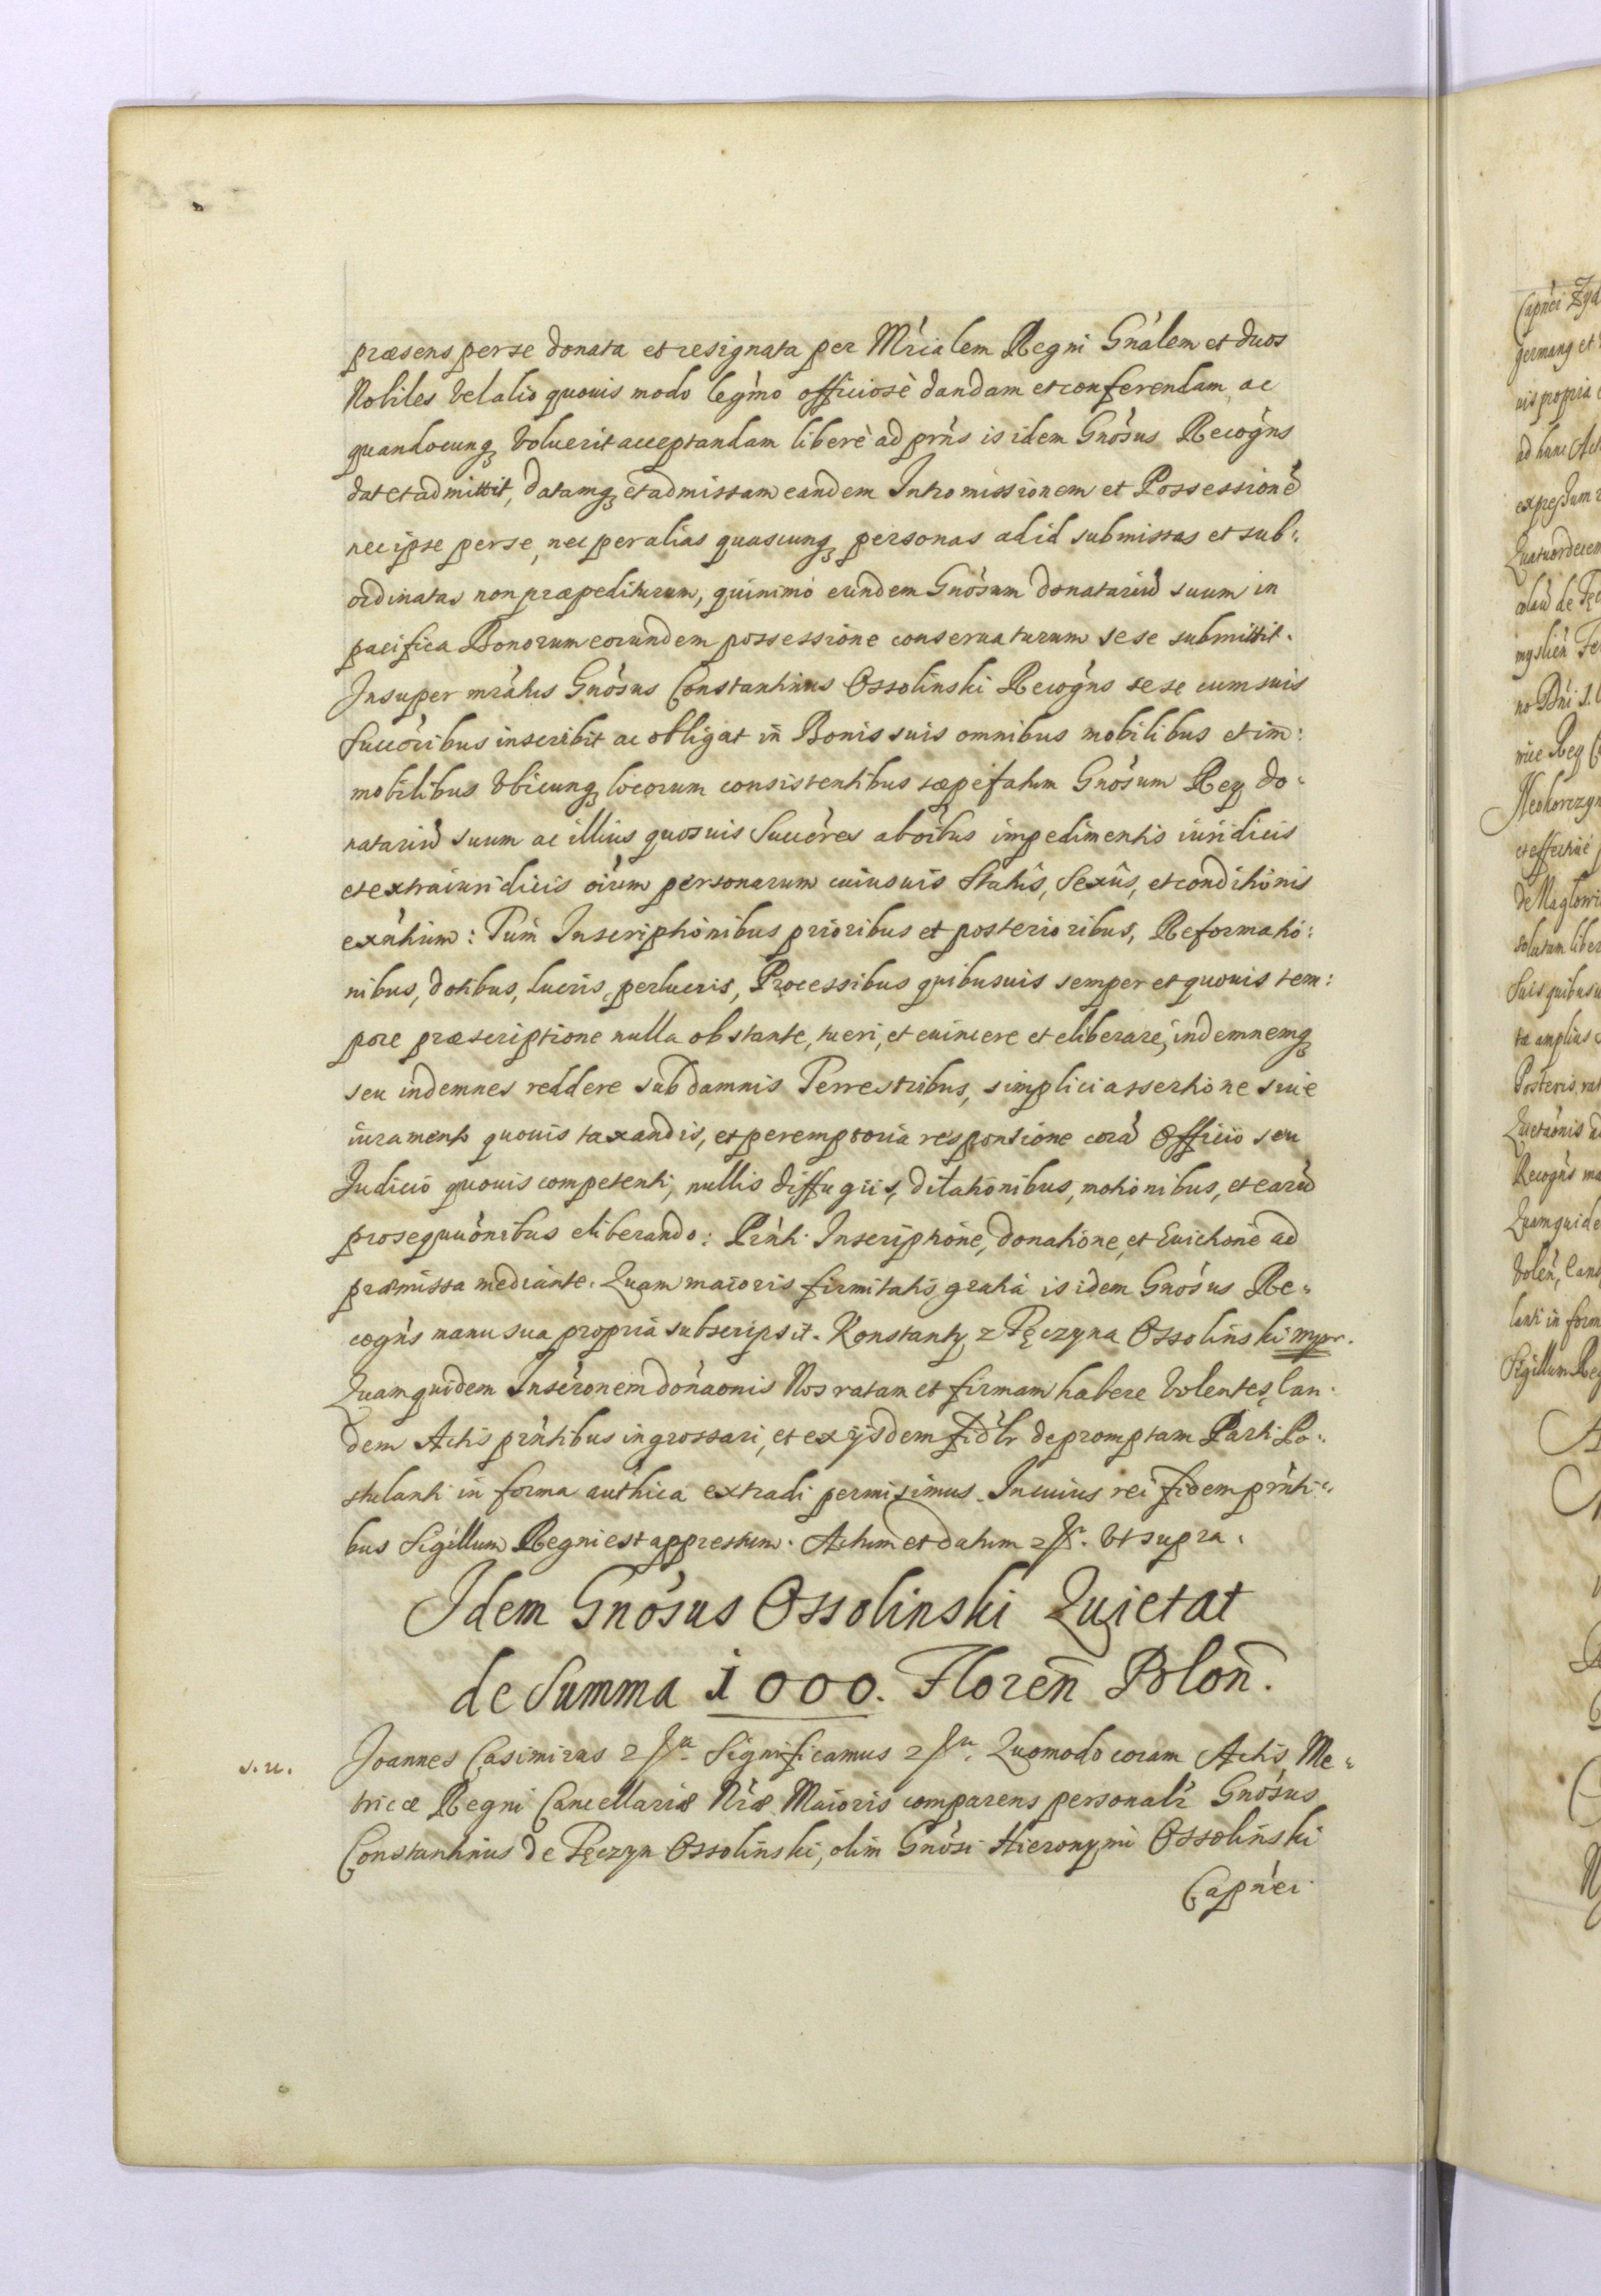 præsens per se donata et resignata per Mrialem Regni Gnálem et duos
Nobiles vel alio quouis modo legmo officiosè dandam et conferendam, ac
quandocunq voluerit acceptandam liberè ad prns is idem Gnósus Recogns
dat et admittit, datamq et admissam eandem Intromissionem et Possessionē
nec ipse per se, nec per alias quascunq personas ad id submissas et sub:
ordinatas non præpediturum, quinimó eundem Gnósum donatariū suum in
pacifica Bonorum eorundem possessione conseruaturum sese submittit.
Insuper mratus Gnósus Constantinus Ossolinski Recogns sese cum suis
Succóribus inscribit ac obligat in Bonis suis omnibus mobilibus et im:
mobilibus vbicunq locorum consistentibus sæpefatum Gnósum Rey do:
natariū suum ac illius quosuis Succóres ab oibus impedimentis iuridicis
et extraiuridicis oium personarum cuiusuis Statûs, Sexûs, et conditionis
exntium: Tum Inscriptionibus prioribus et posterioribus, Reformatio:
nibus, dotibus, Lucris, perlucris, Processibus quibusuis semper et quouis tem:
pore præscriptione nulla obstante, tueri, et euincere et eliberare, indemnemq
seu indemnes reddere sub damnis Terrestribus, simplici assertione siue
iuramento quouis taxandis, et peremptoria responsione corā Officio seu
Judicio quouis competenti, nullis diffugiis, dilationibus, motionibus, et earū
prosequuónibus eliberando: Prnti Inscriptione, donatione, et Euictione ad
præmissa mediante. Quam maioris firmitatis gratia is idem Gnósus Re:
cogns manu sua propria subscripsit. Konstanty z Tęczyna Ossolinski mpr.
Quam quidem Inscronem donaonis Nos ratam et firmam habere volentes, Ean:
dem Actis prntibus ingrossari, et ex ijsdem fidlr depromptam Parti Po:
stulanti in forma authica extradi permisimus. In cuius rei fidem prnti:
bus Sigillum Regni est appressum. Actum et datum ut supra.
Idem Gnósus Ossolinski Quietat
de Summa 1000. Floren Polon.
s. u. Joannes Casimirus Significamus Quomodo coram Actis Me:
tricæ Regni Cancellariæ Nræ Maioris comparens personalr Gnósus
Constantinus de Tęczyn Ossolinski, olim Gnósi Hieronymi Ossolinski
Capnei